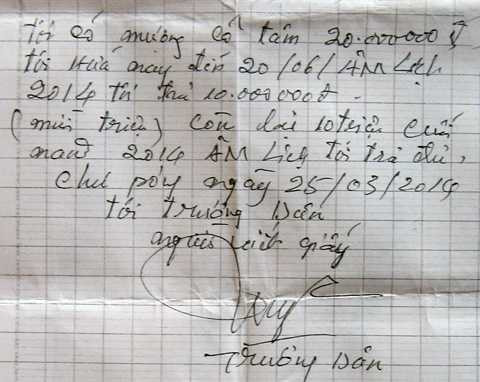 tôi có mướng cô tâm 20.000000 đ
tôi Hứa nay đến 20/06/ÂM Lịch
2014 tôi trả 10.000000đ.
(mười triệu) còn lại 10 triệu cuối
năm 2014 ÂM Lịch tôi trả đủ,
Chư pưy ngày 25/03/2014
tôi trương Dân
người viết giấy
Trương Dân